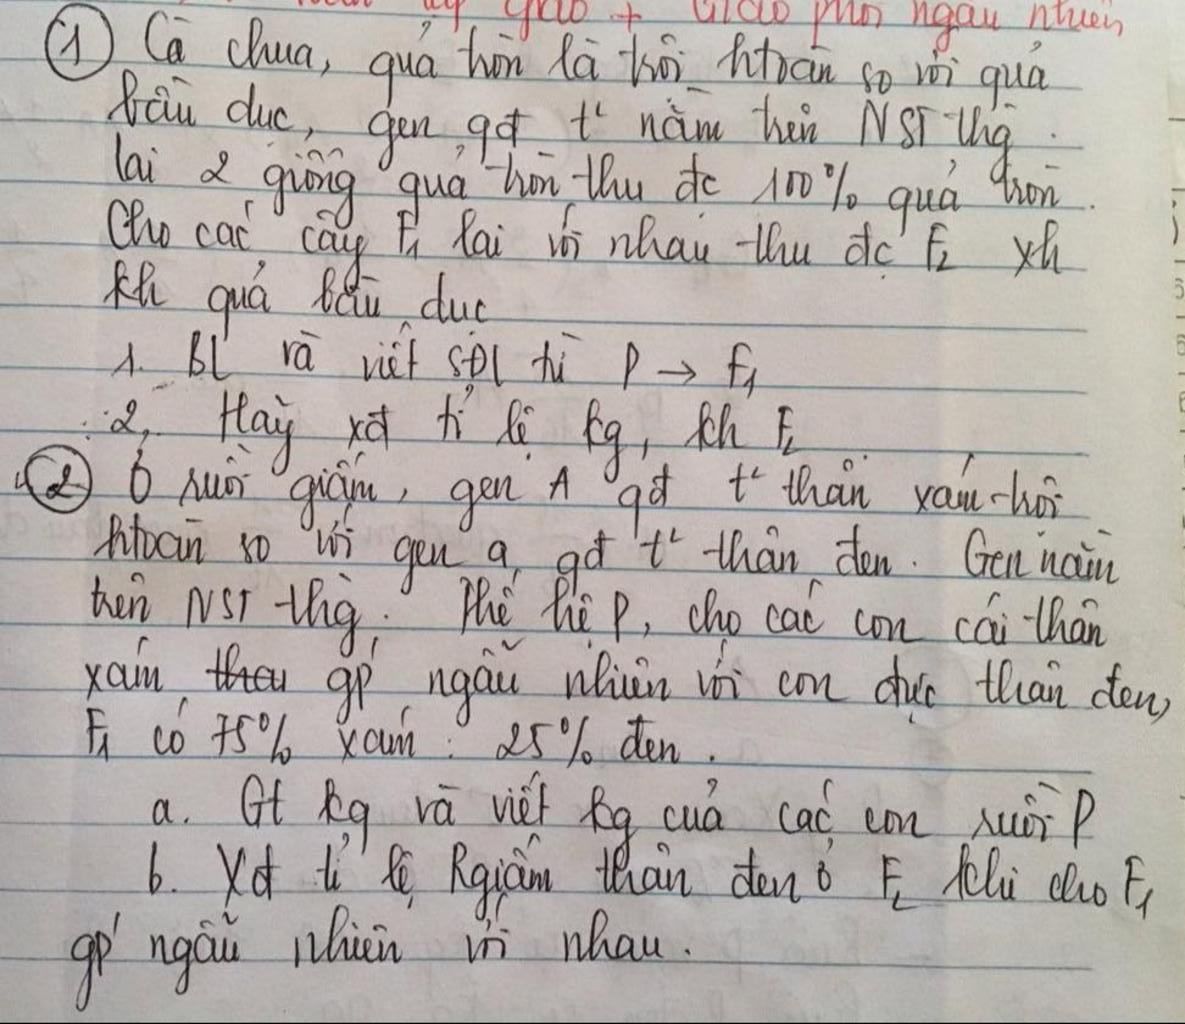 tự giao + Giao phối ngẫu nhiên
① Cà chua, quả tròn là trội htoàn so với quả
bầu dục, gen qđ t² nằm trên NST thg.
lai 2 giống quả tròn thu đc 100% quả tròn.
Cho các cây F₁ lai với nhau thu đc F₂ xh
kh quả bầu dục
1. BL và viết SĐL từ P → F₁
2, Hãy xđ tỉ lệ kg, kh F₂
② Ở ruồi giấm, gen A qđ t² thân xám trội
htoàn so với gen a qđ t² thân đen. Gen nằm
trên NST thg. Thế hệ P, cho các con cái thân
xám gp' ngẫu nhiên với con đực thân đen,
F₁ có 75% xám : 25% đen.
a. Gt kg và viết kg của các con ruồi P
b. Xđ tỉ lệ Rgiấm thân đen ở F₂ khi cho F₁
gp' ngẫu nhiên với nhau.